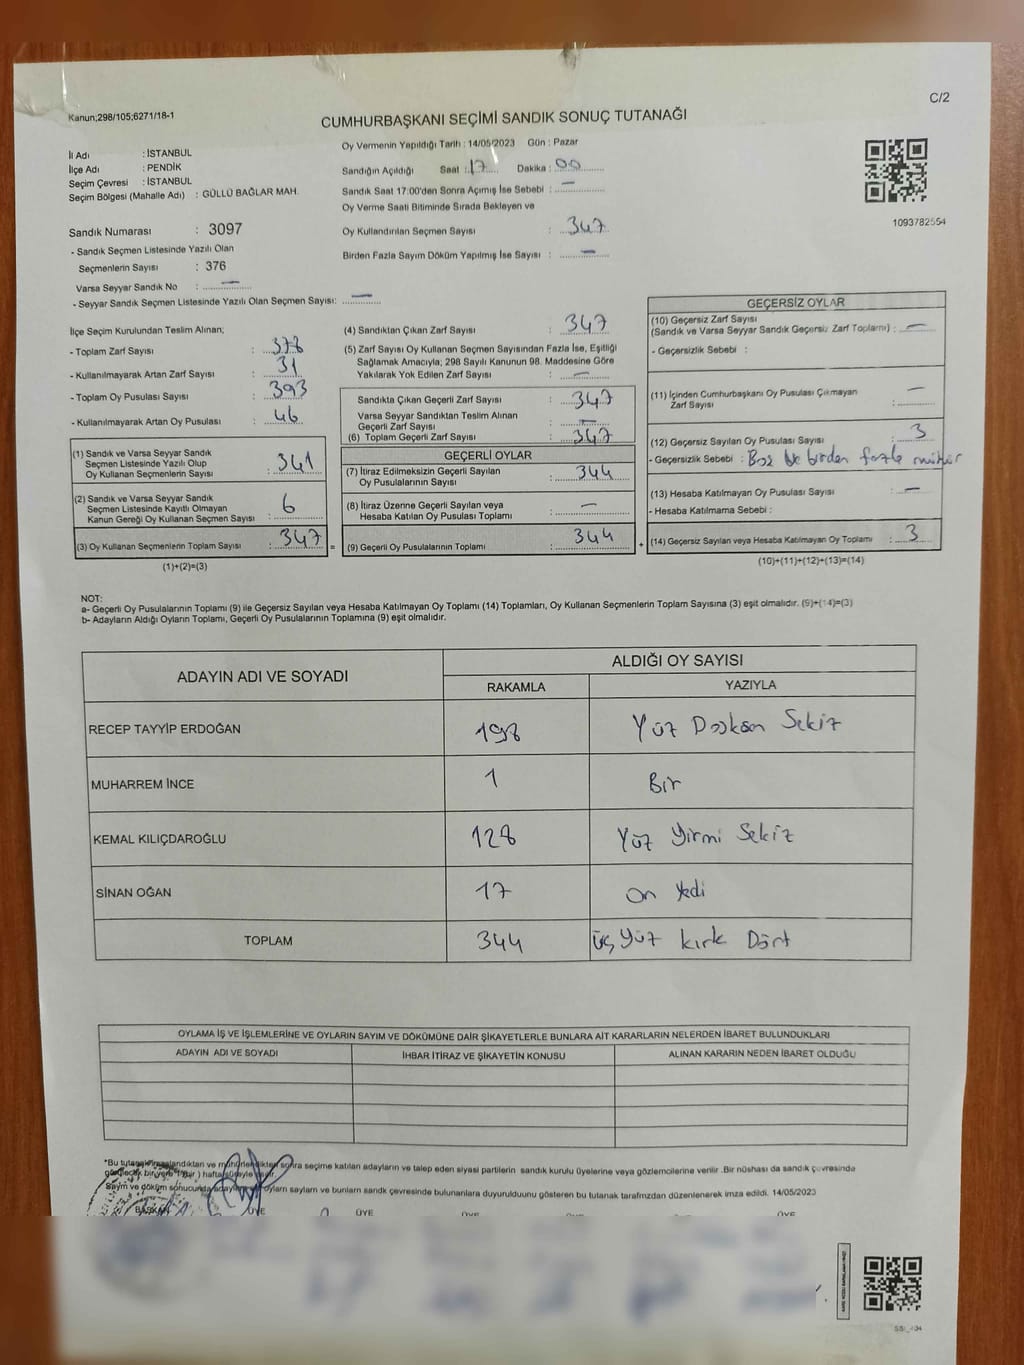 C/2
Kanun;298/105;6271/18-1
CUMHURBAŞKANI SEÇİMİ SANDIK SONUÇ TUTANAĞI
İl Adı : İSTANBUL
İlçe Adı : PENDİK
Seçim Çevresi : İSTANBUL
Seçim Bölgesi (Mahalle Adı) : GÜLLÜ BAĞLAR MAH.
Sandık Numarası : 3097
- Sandık Seçmen Listesinde Yazılı Olan
Seçmenlerin Sayısı : 376
Varsa Seyyar Sandık No : —
- Seyyar Sandık Seçmen Listesinde Yazılı Olan Seçmen Sayısı: —
Oy Vermenin Yapıldığı Tarih : 14/05/2023 Gün : Pazar
Sandığın Açıldığı Saat : 17 Dakika : 00
Sandık Saat 17:00'den Sonra Açımış İse Sebebi : —
Oy Verme Saati Bitiminde Sırada Bekleyen ve
Oy Kullandırılan Seçmen Sayısı : 347
Birden Fazla Sayım Döküm Yapılmış İse Sayısı : —
1093782554
İlçe Seçim Kurulundan Teslim Alınan;
- Toplam Zarf Sayısı : 378
- Kullanılmayarak Artan Zarf Sayısı : 31
- Toplam Oy Pusulası Sayısı : 393
- Kullanılmayarak Artan Oy Pusulası : 46
(1) Sandık ve Varsa Seyyar Sandık
Seçmen Listesinde Yazılı Olup
Oy Kullanan Seçmenlerin Sayısı : 341
(2) Sandık ve Varsa Seyyar Sandık
Seçmen Listesinde Kayıtlı Olmayan
Kanun Gereği Oy Kullanan Seçmen Sayısı : 6
(3) Oy Kullanan Seçmenlerin Toplam Sayısı : 347 =
(1)+(2)=(3)
(4) Sandıktan Çıkan Zarf Sayısı : 347
(5) Zarf Sayısı Oy Kullanan Seçmen Sayısından Fazla İse, Eşitliği
Sağlamak Amacıyla; 298 Sayılı Kanunun 98. Maddesine Göre
Yakılarak Yok Edilen Zarf Sayısı : —
Sandıkta Çıkan Geçerli Zarf Sayısı : 347
Varsa Seyyar Sandıktan Teslim Alınan
Geçerli Zarf Sayısı : —
(6) Toplam Geçerli Zarf Sayısı : 347
GEÇERLİ OYLAR
(7) İtiraz Edilmeksizin Geçerli Sayılan
Oy Pusulalarının Sayısı : 344
(8) İtiraz Üzerine Geçerli Sayılan veya
Hesaba Katılan Oy Pusulası Toplamı : —
(9) Geçerli Oy Pusulalarının Toplamı : 344 +
GEÇERSİZ OYLAR
(10) Geçersiz Zarf Sayısı
(Sandık ve Varsa Seyyar Sandık Geçersiz Zarf Toplamı) : —
- Geçersizlik Sebebi :
(11) İçinden Cumhurbaşkanı Oy Pusulası Çıkmayan
Zarf Sayısı : —
(12) Geçersiz Sayılan Oy Pusulası Sayısı : 3
- Geçersizlik Sebebi : Boş ve birden fazla mühür
(13) Hesaba Katılmayan Oy Pusulası Sayısı : —
- Hesaba Katılmama Sebebi :
(14) Geçersiz Sayılan veya Hesaba Katılmayan Oy Toplamı : 3
(10)+(11)+(12)+(13)=(14)
NOT:
a- Geçerli Oy Pusulalarının Toplamı (9) ile Geçersiz Sayılan veya Hesaba Katılmayan Oy Toplamı (14) Toplamları, Oy Kullanan Seçmenlerin Toplam Sayısına (3) eşit olmalıdır. (9)+(14)=(3)
b- Adayların Aldığı Oyların Toplamı, Geçerli Oy Pusulalarının Toplamına (9) eşit olmalıdır.
ADAYIN ADI VE SOYADI ALDIĞI OY SAYISI
RAKAMLA YAZIYLA
RECEP TAYYİP ERDOĞAN 198 Yüz Doksan Sekiz
MUHARREM İNCE 1 Bir
KEMAL KILIÇDAROĞLU 128 Yüz Yirmi Sekiz
SİNAN OĞAN 17 On Yedi
TOPLAM 344 Üç Yüz Kırk Dört
OYLAMA İŞ VE İŞLEMLERİNE VE OYLARIN SAYIM VE DÖKÜMÜNE DAİR ŞİKAYETLERLE BUNLARA AİT KARARLARIN NELERDEN İBARET BULUNDUKLARI
ADAYIN ADI VE SOYADI İHBAR İTİRAZ VE ŞİKAYETİN KONUSU ALINAN KARARIN NEDEN İBARET OLDUĞU
*Bu sonra seçime katılan adayların ve talep eden siyasi partilerin sandık kurulu üyelerine veya gözlemcilerine verilir .Bir nüshası da sandık çevresinde
Sayım ve döküm sonucunda oyların sayıları ve bunların sandık çevresinde bulunanlara duyurulduğunu gösteren bu tutanak tarafımızdan düzenlenerek imza edildi. 14/05/2023
BAŞKAN ÜYE ÜYE ÜYE ÜYE ÜYE